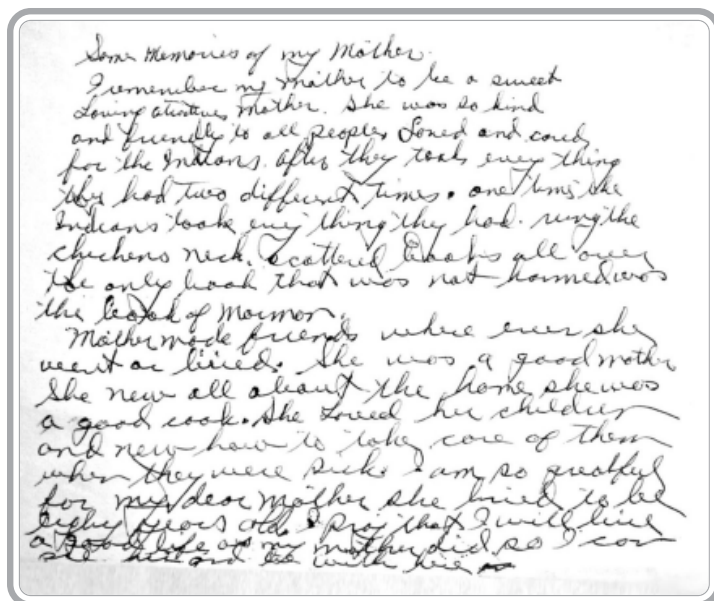 Some Memories of my Mother.
I remember my mother to be a sweet
Loving atentive Mother. She was so kind
and friendly to all peoples Loved and cared
for the Indians. after they took every thing
they had two different times. one time the
Indians took evry thing they had. rung the
chickens neck. scattered books all over
the only book that was not harmed was
the book of Mormon.
Mother made friends where ever she
went or lived. She was a good mother
She new all about the home she was
a good cook. She Loved her children
and new how to take care of them
when they were sick. I am so greatful
for my dear mother she lived to be
eighty years old. I pray that I will live
a good life as my mother did so I can
see her and be with her